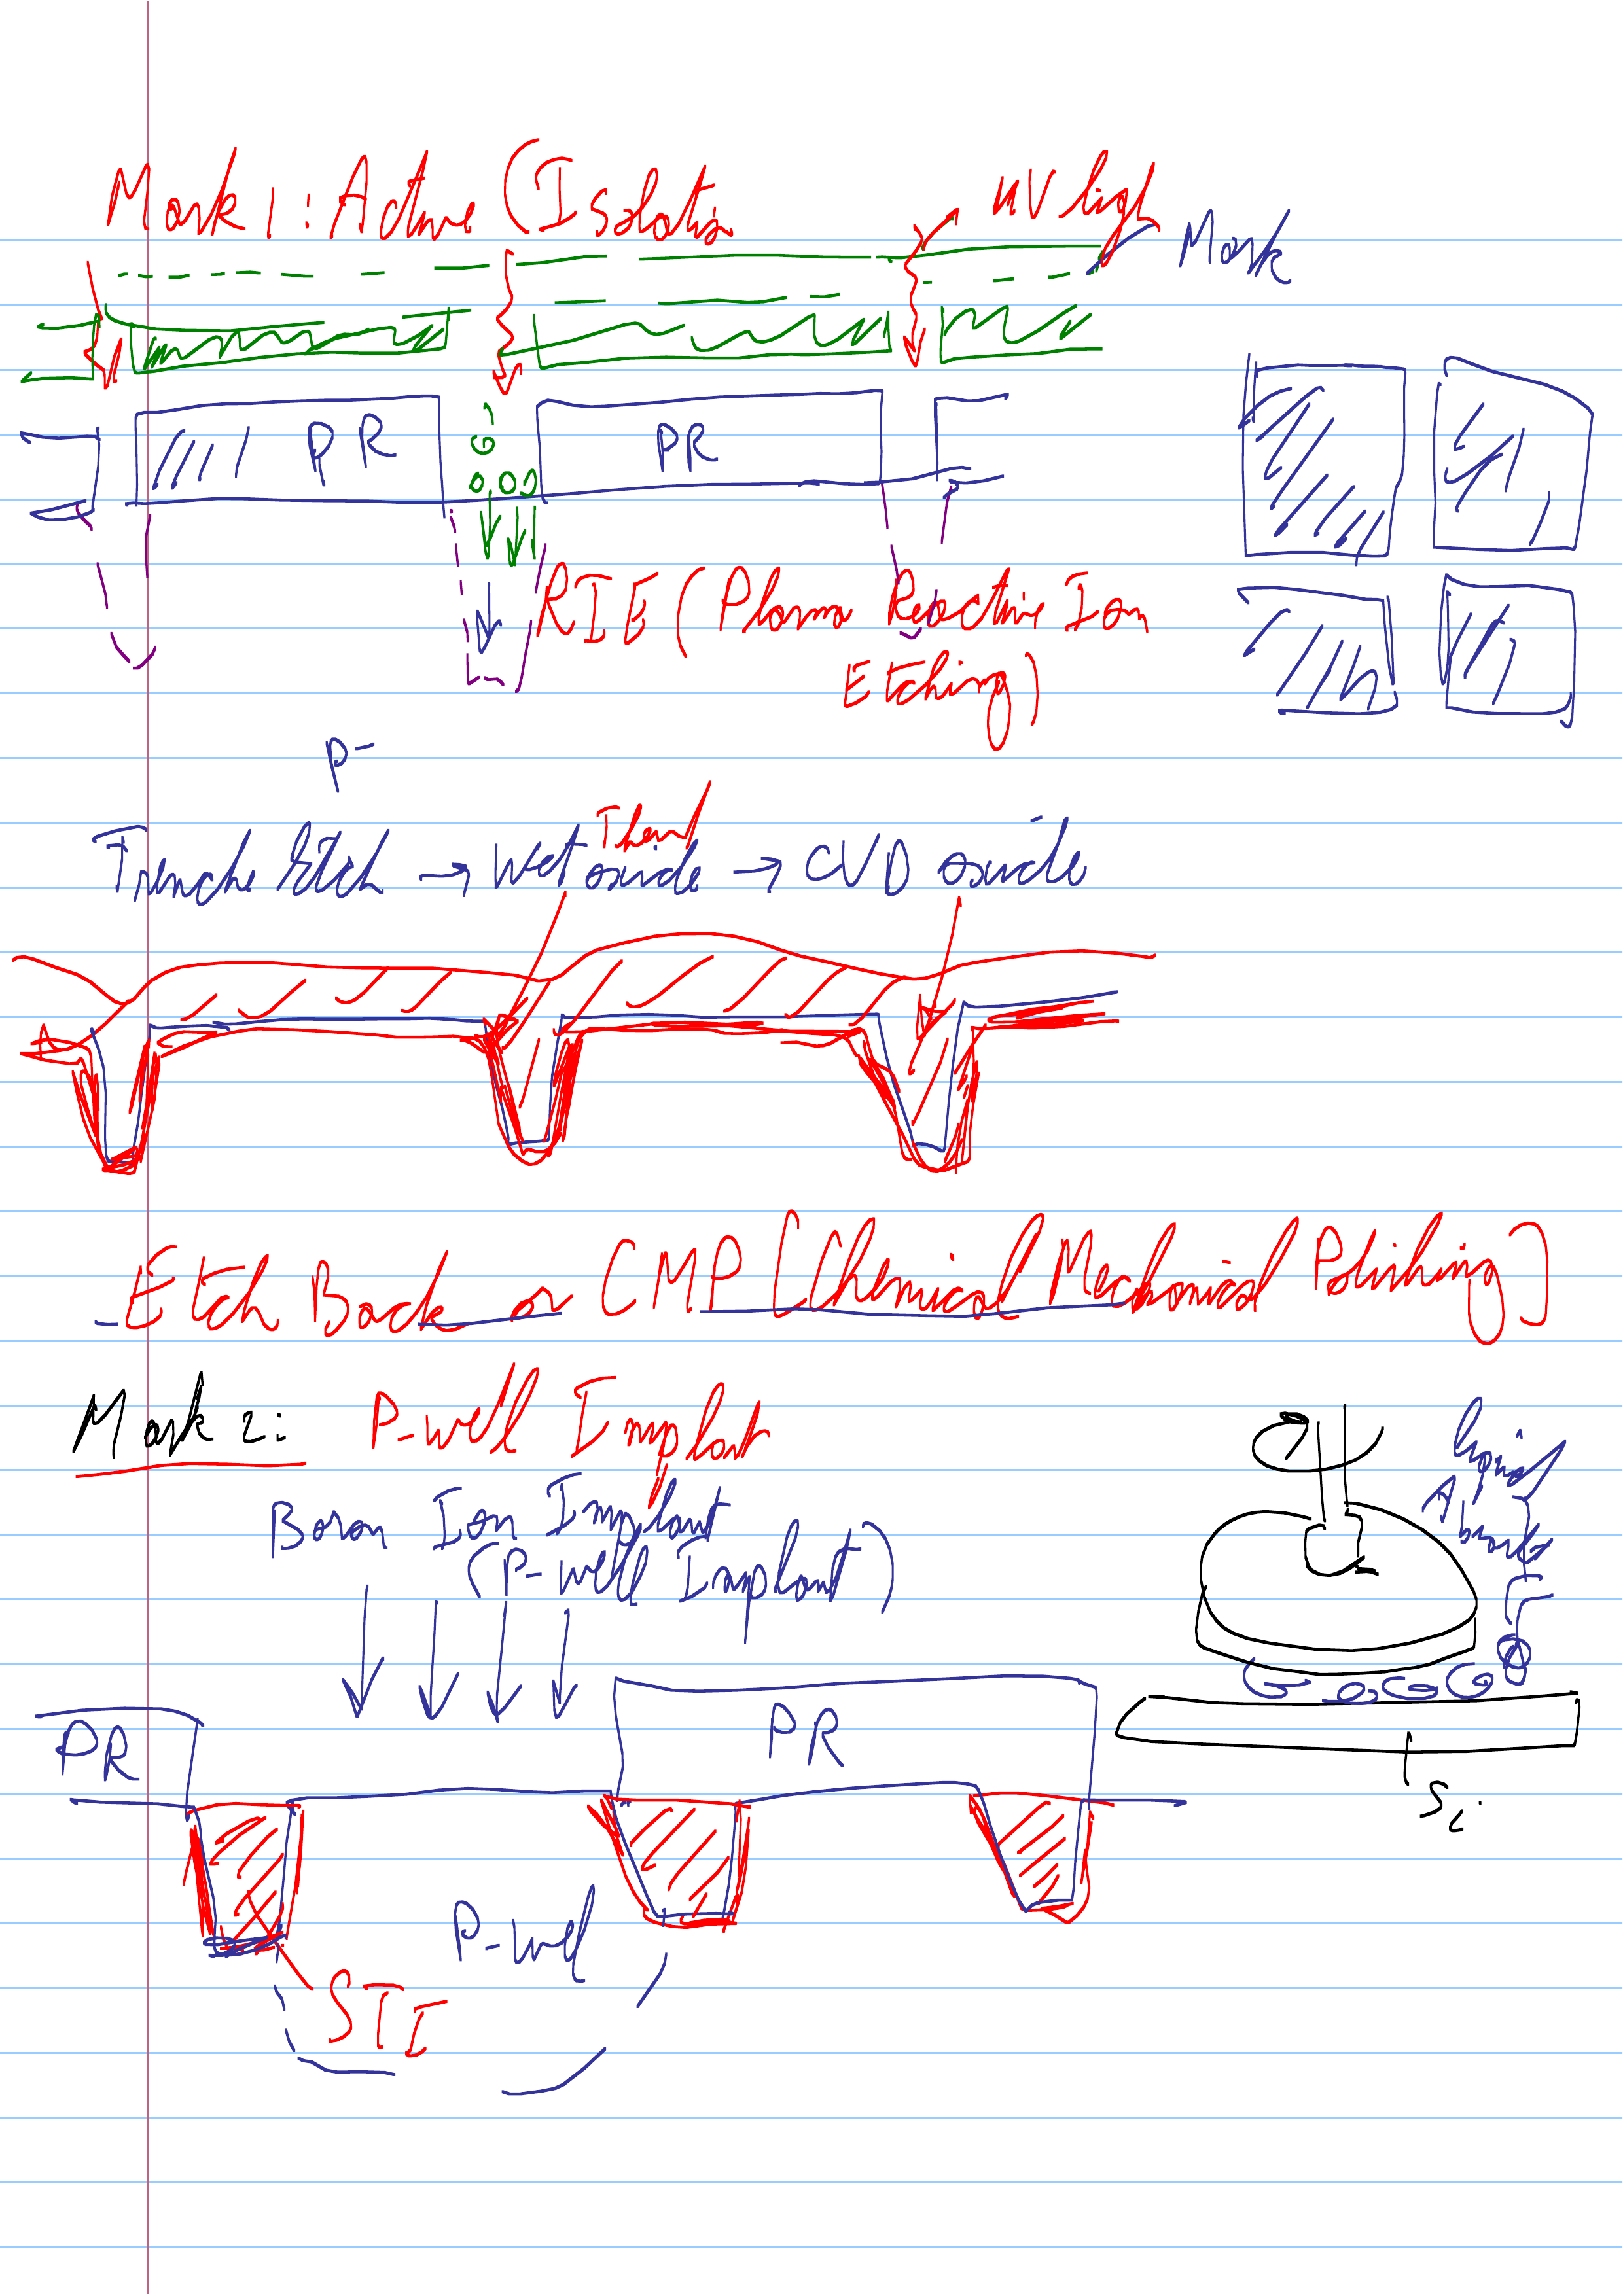 Mask 1: Active (Isolation
UV light
Mask
PR
PR
RIE (Plasma Reactive Ion
Etching)
p-
Trench Etch → Wet oxide → CVD oxide
Etch Back or CMP [Chemical Mechanical Polishing]
Mask 2: P-well Implant
Boron Ion Implant
(P-well Implant)
liquid
PR
PR
Si
P-well
STI